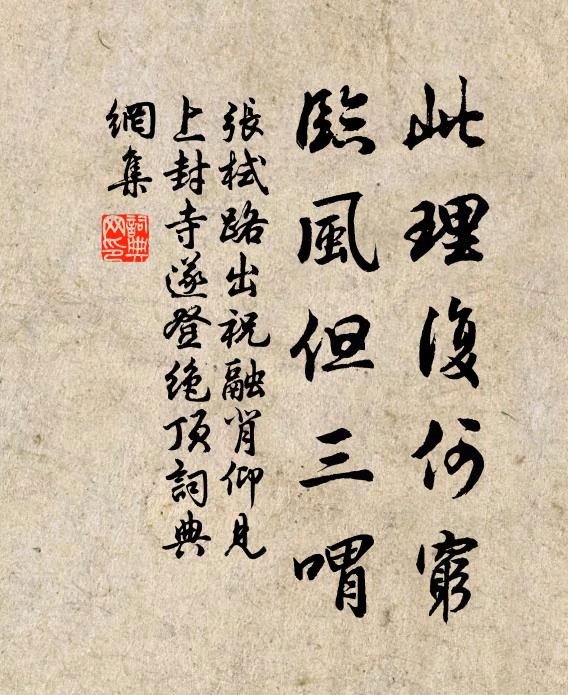 此理復何窮
臨風但三喟
張栻路出祝融肖仰見
上封寺遂登绝頂詞典
網集
詞典
网印